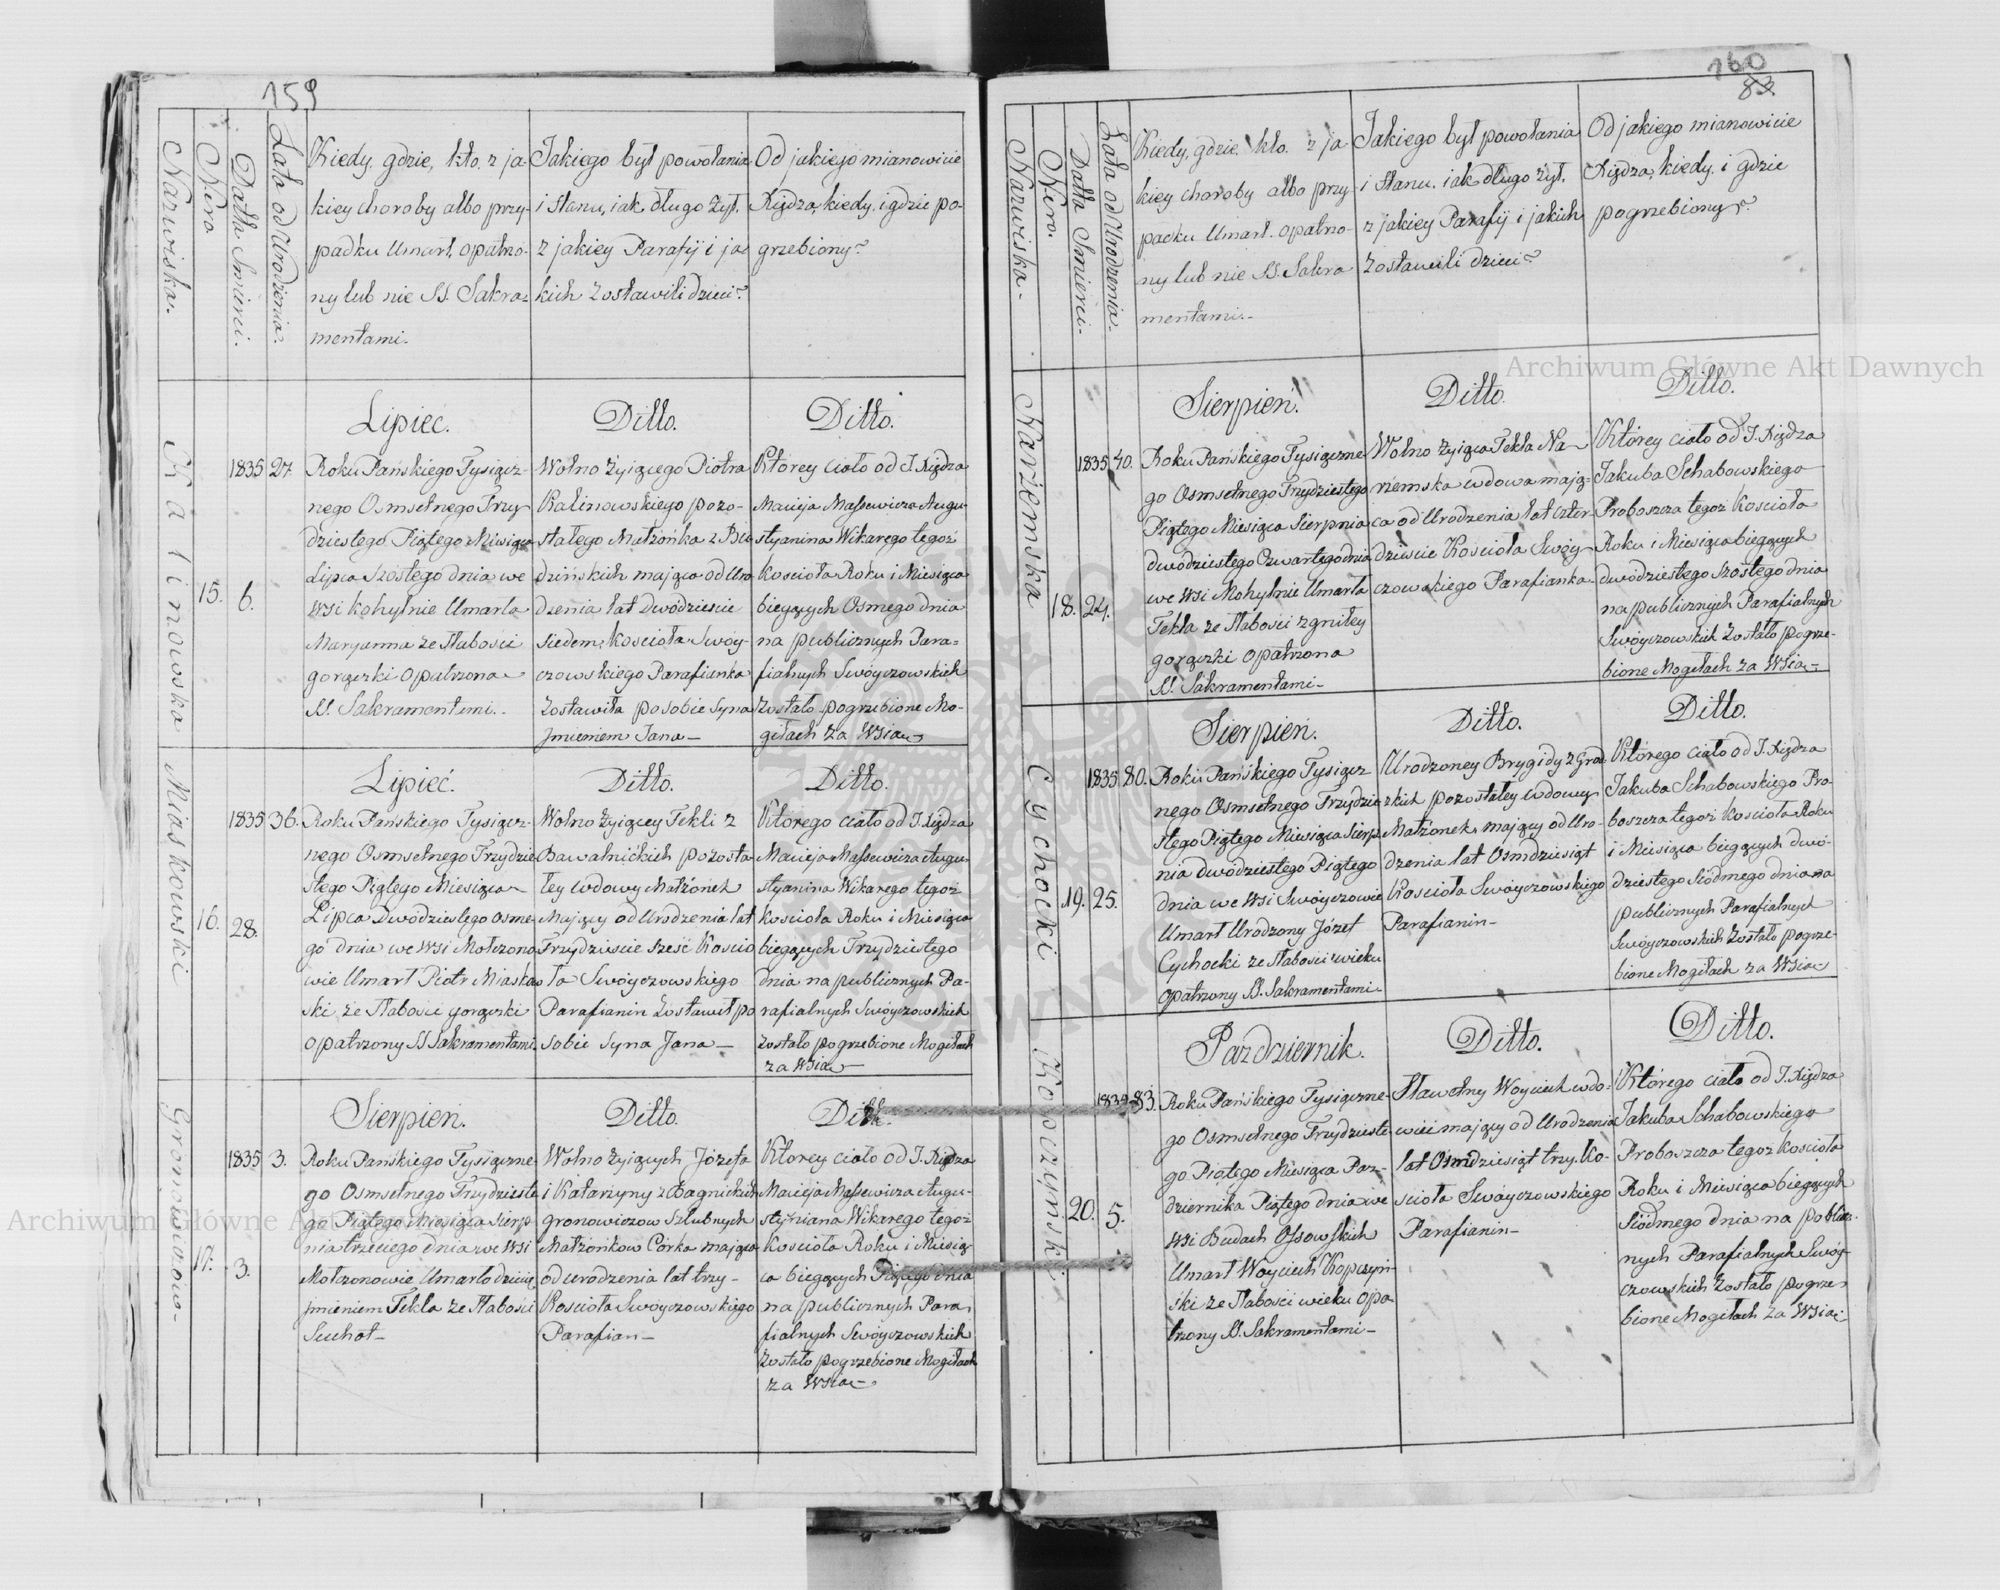 159
Nazwiska.
Nero
Datta Smierci.
Lata od Urodzenia.
Kiedy, gdzie, kto, z ja
kiey choroby albo przy-
padku Umarł, opatrzo-
ny lub nie SS. Sakra-
mentami.
Jakiego był powołania
i stanu, iak długo żył,
z jakiey Parafij i ja-
kich zostawili dzieci?
Od jakiego mianowicie
Xiędza, kiedy, i gdzie po-
grzebiony?
Kalinowska
15.
6.
1835
27
Lipiec.
Roku Pańskiego Tysiącz-
nego Osmsetnego Trzy
dziestego Piątego Miesiąca
Lipca Szostego dnia we
wsi Kohylnie Umarła
Maryanna ze słabosci
gorączki Opatrzona
SS. Sakramentami.
Ditto.
Wolno żyiącego Piotra
Kalinowskiego pozo-
stałego Małżonka z Bu
dzińskich maiąca od Uro
dzenia lat Dwódziescie
siedem, Kościoła Swóy-
czowskiego Parafianka
zostawiła po sobie Syna
Jmieniem Jana
Ditto.
Którey ciało od J. Xiędza
Macieja Massewicza Augu-
styanina Wikarego tegoż
Kościoła Roku i Miesiąca
bieżących Osmego dnia
na publicznych Para-
fialnych Swóyczowskich
zostało pogrzebione Mo-
giłach za Wsią
Miaskowski
16.
28.
1835
36.
Lipieć.
Roku Pańskiego Tysiącz-
nego Osmsetnego Trzydzie
stego Piątego Miesiąca
Lipca Dwódziestego Osme-
go dnia we wsi Mołczano
wie Umarł Piotr Miasko
ski ze słabosci gorączki
opatrzony SS Sakramentami
Ditto.
Wolno żyiącey Tekli z
Bawalnickich pozosta
łey wdowy Małżonek
Maiący od Urodzenia lat
Trzydziescie szesć Koscio
ła Swóyczowskiego
Parafianin zostawił po
sobie Syna Jana
Ditto.
Którego ciało od J. Xiędza
Macieja Massewicza Augu-
styanina Wikarego tegoż
kościoła Roku i Miesiąca
bieżących Trzydziestego
dnia na publicznych Pa-
rafialnych Swóyczowskich
zostało pogrzebione Mogiłach
za Wsią
Gronowiczow
17.
3.
1835
3.
Sierpień.
Roku Pańskiego Tysiączne
go Osmsetnego Trzydzieste
go Piątego Miesiąca Sierp
nia trzeciego dnia we Wsi
Mołczonowie Umarło dziecię
Jmieniem Tekla ze słabosci
Suchot
Ditto.
Wolno żyiących Józefa
i Katarzyny z Bagnickich
gronowiczow Szlubnych
Małżonkow Córka maiąca
od urodzenia lat trzy
Kościoła Swóyczowskiego
Parafian
Ditto.
Którey ciało od J. Xiędza
Macieja Massewicza Augu-
styniana Wikarego tegoż
Kościoła Roku i Miesią
ca bieżących Piątego dnia
na publicznych Para
fialnych Swóyczowskich
zostało pogrzebione Mogiłach
za Wsią
160
83
Nazwiska.
Nero.
Datta Smierci.
Lata od Urodzenia.
Kiedy, gdzie, kto, z ja
kiey choroby albo przy-
padku Umarł, opatrzo-
ny lub nie SS. Sakra
mentami.
Jakiego był powołania
i stanu, iak długo żył,
z jakiey Parafij i jakich
zostawili dzieci?
Od jakiego mianowicie
Xiędza, kiedy, i gdzie
pogrzebiony?
Narzemska
18.
24.
1835
40.
Sierpień.
Roku Pańskiego Tysiączne
go Osmsetnego Trzydziestego
Piątego Miesiąca Sierpnia
dwódziestego Czwartego dnia
we wsi Mohylnie Umarła
Tekla ze słabosci zgniłey
gorączki opatrzona
SS. Sakramentami
Ditto.
Wolno żyiąca Tekla Na-
rzemska wdowa mają-
ca od Urodzenia lat czter-
dziescie Kościoła Swóy-
czowskiego Parafianka
Ditto.
Którey ciało od J. Xiędza
Jakuba Schabowskiego
Proboszcza tegoż Kościoła
Roku i Miesiąca bieżących
dwódziestego szostego dnia
na publicznych Parafialnych
Swóyczowskich zostało pogrze-
bione Mogiłach za Wsią
Cychocki
19.
25.
1835
80.
Sierpień.
Roku Pańskiego Tysiącz
nego Osmsetnego Trzydzie
stego Piątego Miesiąca Sierp
nia dwódziestego Piątego
dnia we Wsi Swóyczowie
Umarł Urodzony Józef
Cychocki ze słabosci wieku
opatrzony SS. Sakramentami
Ditto.
Urodzoney Brygidy z Grod
zkich pozostałey wdowy
Małżonek, maiący od Uro-
dzenia lat Osmdziesiąt
Kościoła Swóyczowskiego
Parafianin
Ditto.
Którego ciało od J. Xiędza
Jakuba Schabowskiego Pro
boszcza tegoż Kościoła Roku
i Miesiąca bieżących dwó-
dziestego siódmego dnia na
publicznych Parafialnych
Swóyczowskich zostało pogrze-
bione Mogiłach za Wsią
Kopczynski
20.
5.
1835
83.
Pazdziernik.
Roku Pańskiego Tysiączne-
go Osmsetnego Trzydzieste
go Piątego Miesiąca Paz-
dziernika Piątego dnia we
wsi Budach Ossowskich
Umarł Woyciech Kopczyń-
ski ze słabosci wieku opa-
trzony SS. Sakramentami
Ditto.
Sławetny Woyciech wdo-
wiec maiący od Urodzenia
lat Osmdziesiąt trzy. Ko-
scioła Swóyczowskiego
Parafianin
Ditto.
Którego ciało od J. Xiędza
Jakuba Schabowskiego
Proboszcza tegoż Kościoła
Roku i Miesiąca bieżących
siódmego dnia na public-
nych Parafialnych Swóy-
czowskich zostało pogrze-
bione Mogiłach za Wsią
Archiwum Główne Akt Dawnych
Archiwum Główne Akt